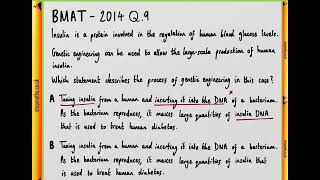 BMAT - 2014 Q.9
Insulin is a protein involved in the regulation of human blood glucose levels.
Genetic engineering can be used to allow the large-scale production of human
insulin.
Which statement describes the process of genetic engineering in this case?
A Taking insulin from a human and inserting it into the DNA of a bacterium.
As the bacterium reproduces, it makes large quantities of insulin DNA
that is used to treat human diabetes.
B Taking insulin from a human and inserting it into the DNA of a bacterium.
As the bacterium reproduces, it makes large quantities of insulin that
is used to treat human diabetes.